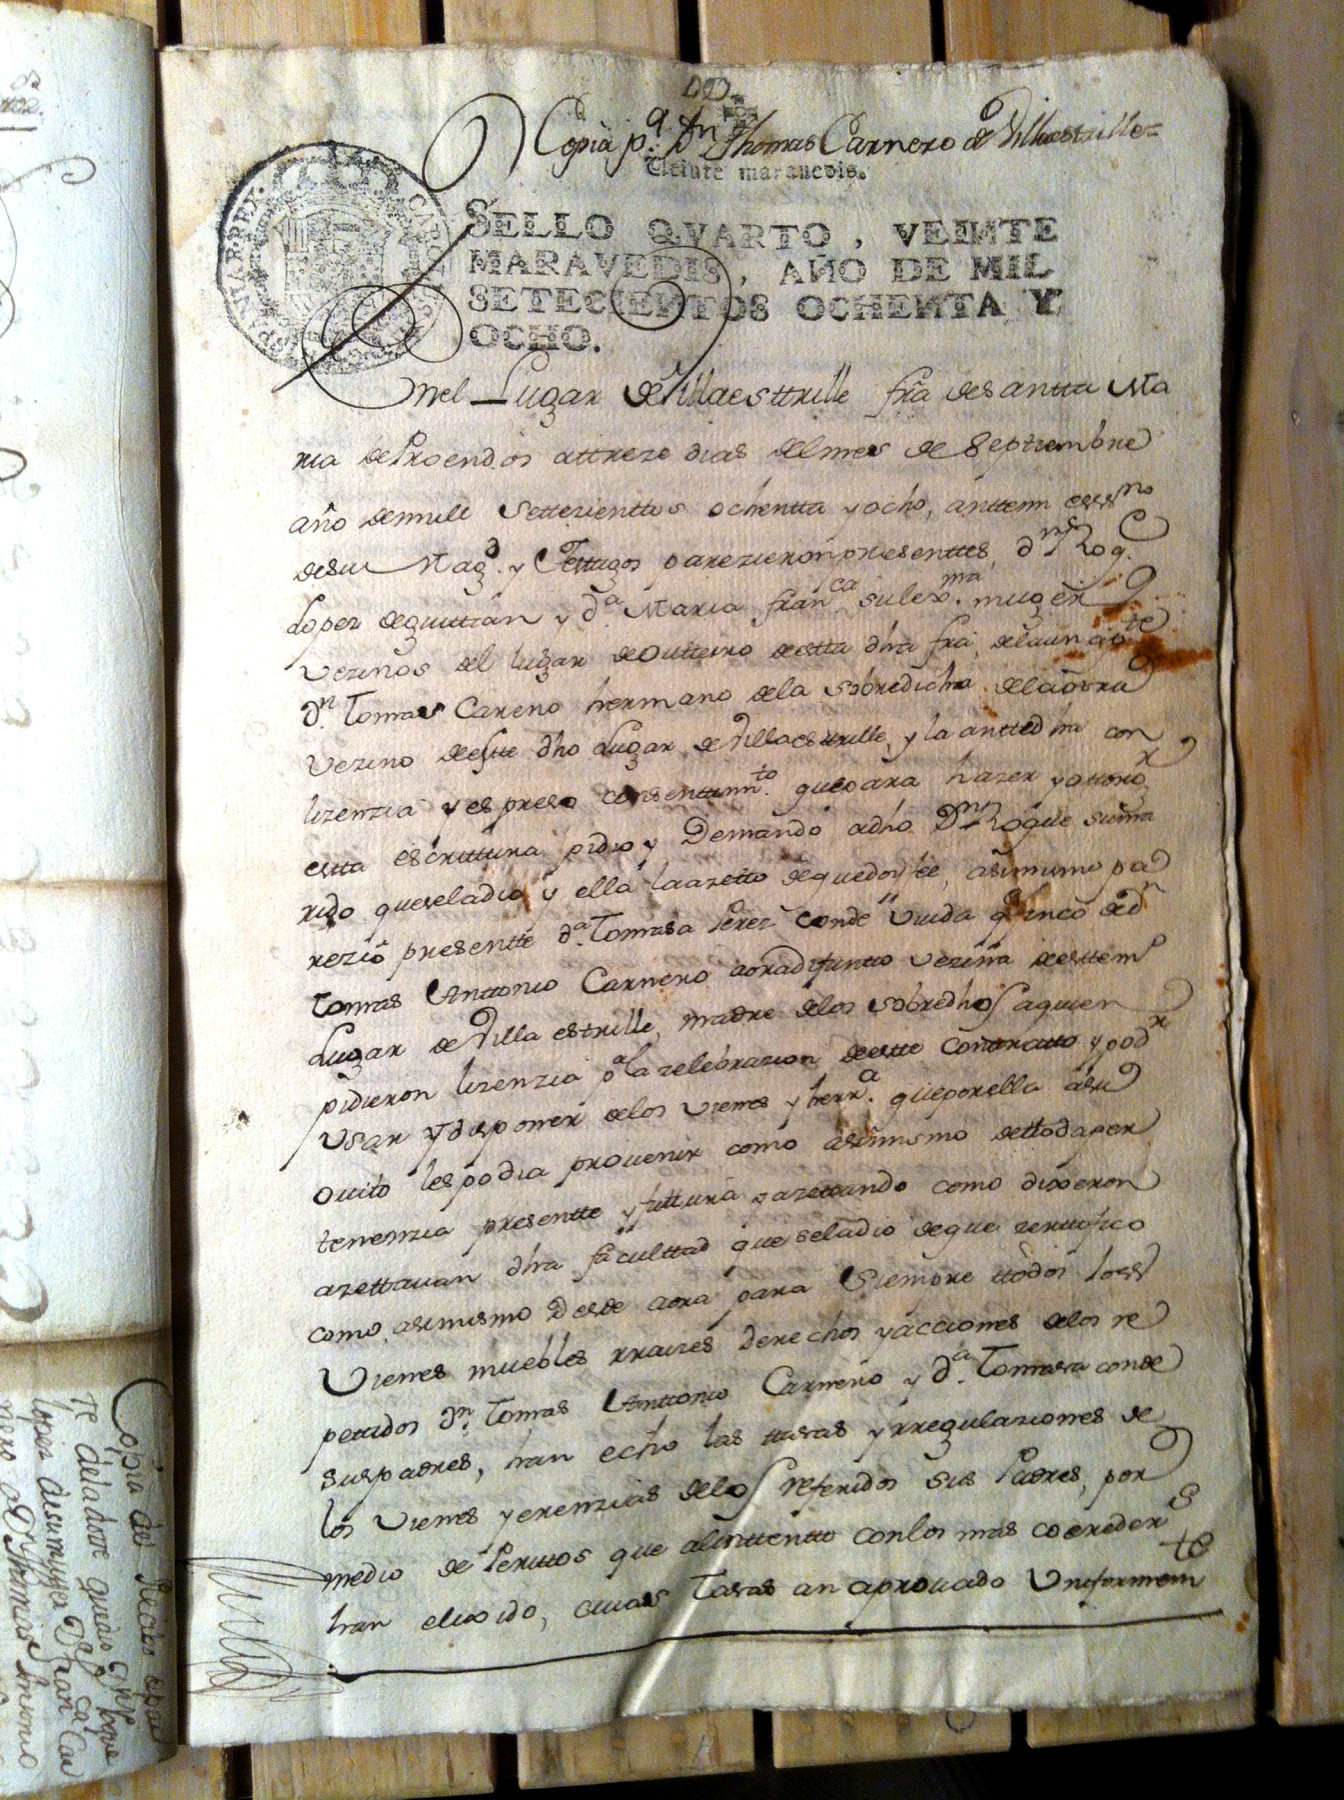 Copia p.ª Dn Thomas Carnero de Villaestrille=
Veinte maravedis.
SELLO QVARTO, VEINTE
MARAVEDIS, AÑO DE MIL
SETECIENTOS OCHENTA Y
OCHO.
CAROLUS
HISPANIAR. REX.
Enel Lugar de Villaesttrille fra de Santta Ma
ria de Proendos attreze dias delmes de Septtiembre
año demill settezienttos ochentta y ocho, anttemi essno
desu Magd. y Testigos parezieron presenttes, Dn Roq.e
Lopez deguittian y D.ª Maria Franca su lexma. muger
vezinos del lugar de Outteiro de estta dha fra, delauna pte
Dn. Tomas Careno hermano dela sobredicha delaotra
vezino deestte dho Lugar de Villaesttrille, y la anttedha con
lizenzia y espreso consentimto. que para hazer y ottorgr
estta escrittura pidio y Demando adho Dn Roque suma
rido queseladio y ella laazetto dequedoi fee, asimismo pa
rezio presentte D.ª Tomasa Perez Conde Viuda q.e finco de Dn
Tomas Anttonio Carnero aoradifuntto vezina de estte mo
Lugar de Villa estrille, madre delos sobredhos aquien
pidieron lizenzia p.ª la zelebrazion deestte Contratto y podr
Usar y disponer delos vienes y herr.ª queporella asu
ovito les podia provenir como asimismo dettodaper
tenenzia presentte y futtura y azettando como dixeron
azettavan dha facultad que seladio deque zertifico
como asimismo Desde aora para Siempre ttodos los
Vienes muebles rraizes derechos y acciones delos re
pettidos Dn. Tomas Anttonio Carneño y D.ª Tomasa conde
sus padres, han echo las ttasas y rregulaziones de
los Vienes y erenzias delos referidos sus Padres, por
medio de Perittos que alinttentto conlos mas coerederos
han elixido, cuias Tasas an aprovado Uniformemte
Copia del Recivo apar
te deladote quedio Dn Roque
Lopez desumuger D.ª Franca Car
nero a Dn Thomas Antonio